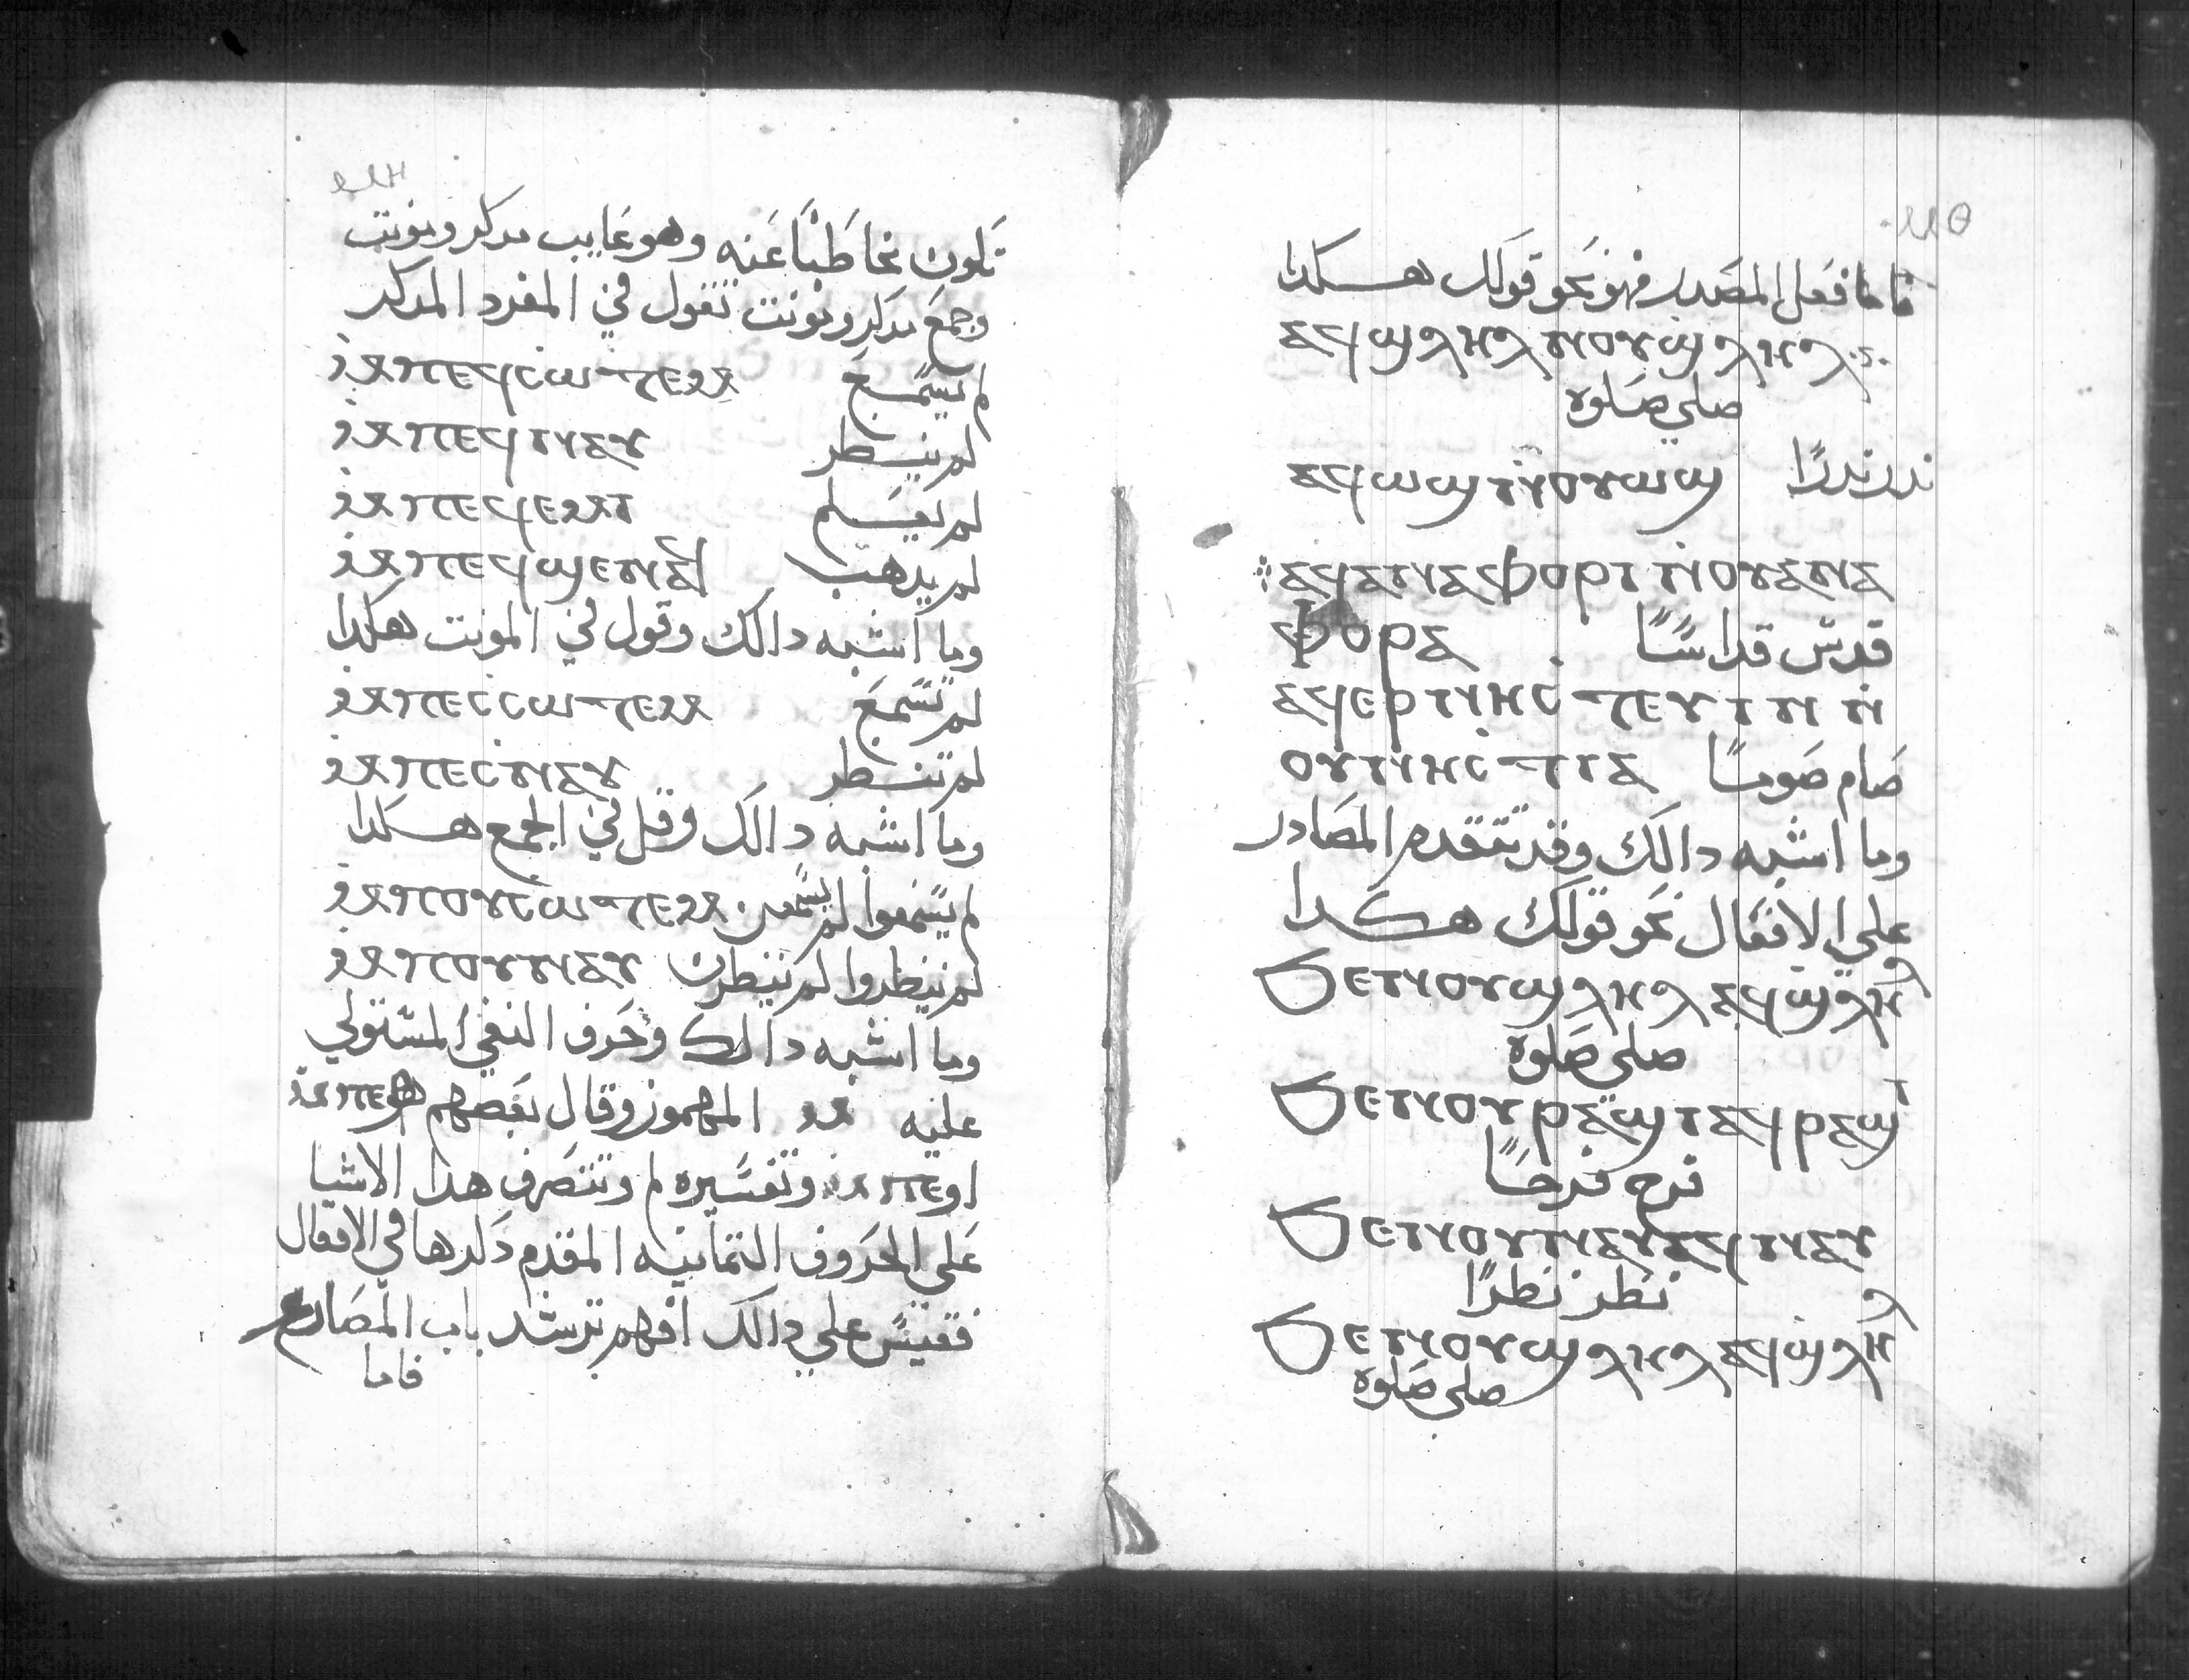 تكون مخاطبًا عنه وهو غايب مدكر ومونت
وجمع مدكر ومونت تقول في المفرد المدكر
ⲙ̀ⲡⲉϥⲥⲱⲧⲉⲙ لم يسمع
ⲙ̀ⲡⲉϥⲛⲁⲩ لم ينظر
ⲙ̀ⲡⲉϥⲉⲙⲓ لم يعلم
ⲙ̀ⲡⲉϥϣⲉⲛⲁϥ لم يدهب
وما اشبه دالك وقول في المونت هكدا
ⲙ̀ⲡⲉⲥⲥⲱⲧⲉⲙ لم تسمع
ⲙ̀ⲡⲉⲥⲛⲁⲩ لم تنظر
وما اشبه دالك وقل في الجمع هكدا
لم يسمعوا لم يسمعن ⲙ̀ⲡⲟⲩⲥⲱⲧⲉⲙ
لم ينظروا لم ينظرن ⲙ̀ⲡⲟⲩⲛⲁⲩ
وما اشبه دالك وحرف النفي المستولي
عليه ⲙ̀ المهموز وقال بعضهم هو ⲙ̀ⲡⲉ
او ⲙ̀ⲡⲉ وتفسيره لم وتتصرف هدا الاشيا
على الحروف التمانيه المقدم دكرها في الافعال
فقيس علي دالك افهم ترشد باب المصادر
فاما
فاما فعل المصدر فهو نحو قولك هكدا
ⲁϥϣⲗⲏⲗ ⲛⲟⲩϣⲗⲏⲗ
صلي صلوه
ⲁϥⲱϣ ⲛ̀ⲟⲩⲱϣ ندر ندرًا
ⲁϥⲁⲛⲁⲫⲟⲣⲓⲛ ⲛ̀ⲟⲩⲁⲛⲁ
ⲫⲟⲣⲁ قدس قداسًا
ⲁϥⲉⲣⲛⲏⲥⲧⲉⲩⲓⲛ ⲛ̀
ⲟⲩⲛⲏⲥⲧⲓⲁ صام صومًا
وما اشبه دالك وقد تتقدم المصادر
علي الافعال نحو قولك هكدا
ϧⲉⲛⲟⲩϣⲗⲏⲗ ⲁϥϣⲗⲏⲗ
صلي صلوه
ϧⲉⲛⲟⲩⲣⲁϣⲓ ⲁϥⲣⲁϣⲓ
فرح فرحًا
ϧⲉⲛⲟⲩⲛⲁⲩ ⲁϥⲛⲁⲩ
نظر نظرًا
ϧⲉⲛⲟⲩϣⲗⲏⲗ ⲁϥϣⲗⲏⲗ
صلي صلوه